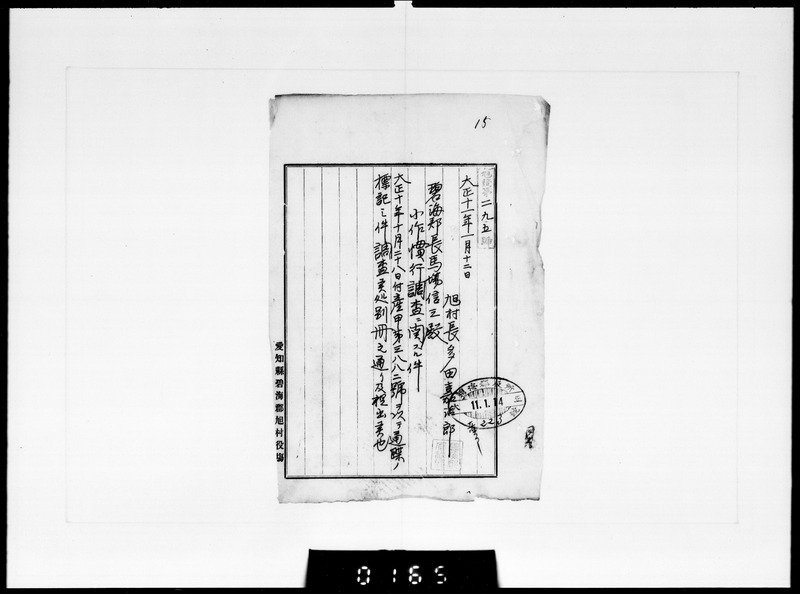 15
二九五
大正十一年一月十二日
旭村長多田嘉治郎
碧海郡長馬場信三殿
小作慣行調査ニ関スル件
大正十年十月二十八日付産甲第三八八二號ヲ以テ通牒ノ
標記ノ件調査候処別冊之通リ及提出候也
11.1.14
愛知縣碧海郡旭村役場
0165